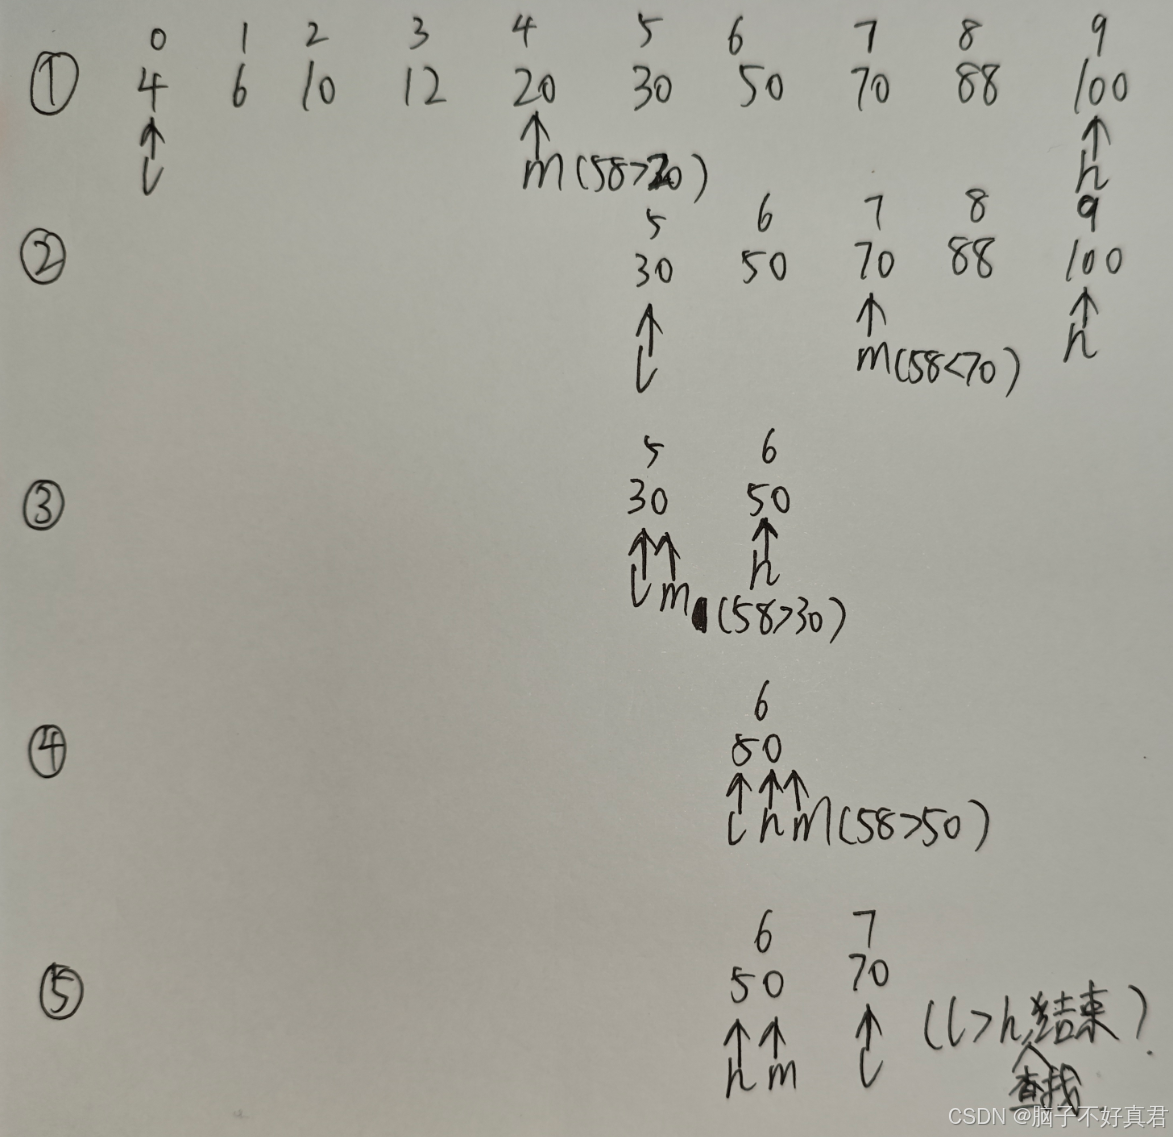 0 1 2 3 4 5 6 7 8 9
① 4 6 10 12 20 30 50 70 88 100
↑ ↑ ↑
l m(58>20) h
5 6 7 8 9
② 30 50 70 88 100
↑ ↑ ↑
l m(58<70) h
5 6
③ 30 50
↑↑ ↑
l m h
(58>30)
6
④ 50
↑↑↑
l h m(58>50)
6 7
⑤ 50 70
↑ ↑ ↑ (l>h,结束)
h m l 查找
CSDN @脑子不好真君